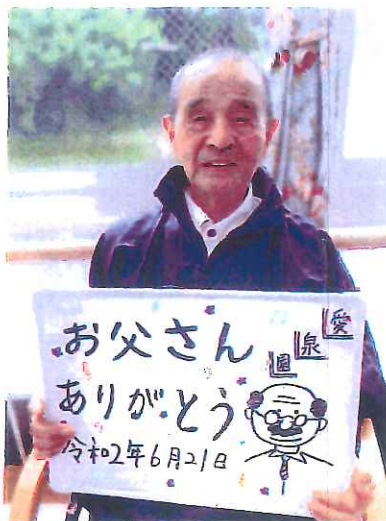 お父さん
ありがとう
令和2年6月21日
愛泉園